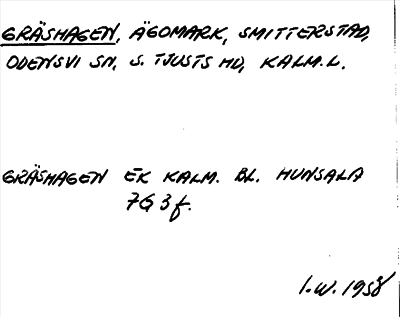 GRÄSHAGEN, ÄGOMARK, SMITTERSTAD,
ODENSVI SN, S. TJUSTS HD, KALM.L.
GRÄSHAGEN EK KALM. BL. HUNSALA
7G 3f.
I.W. 1958